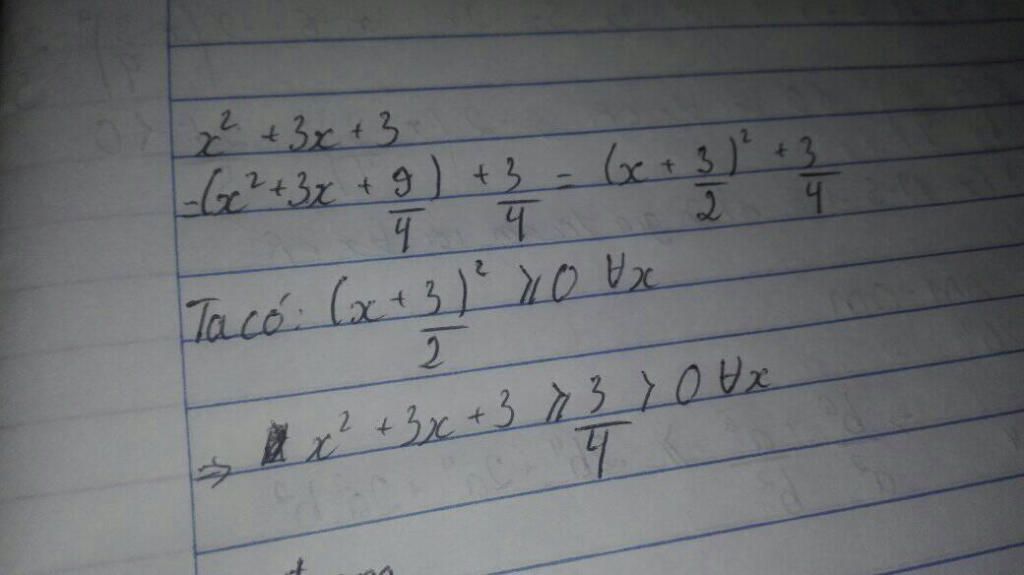 x² + 3x + 3
=(x² + 3x + 9/4) + 3/4 = (x + 3/2)² + 3/4
Ta có: (x + 3/2)² ⩾ 0 ∀x
⇒ x² + 3x + 3 ⩾ 3/4 > 0 ∀x